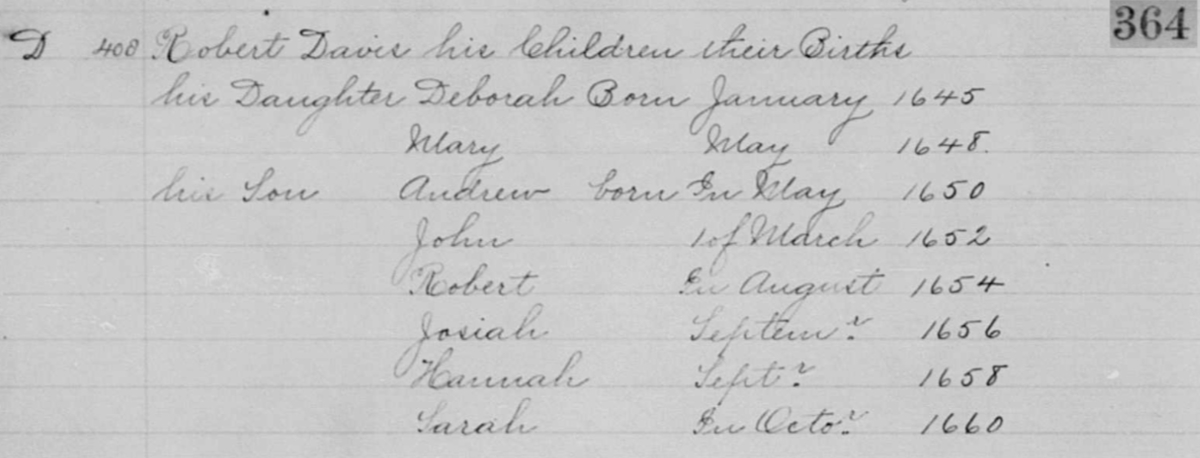 364
D 408 Robert Davis his Children their Births
his Daughter Deborah Born January 1645
Mary May 1648.
his Son Andrew born In May 1650
John 1 of March 1652
Robert In August 1654
Josiah Septemr. 1656
Hannah Septr. 1658
Sarah In Octor. 1660